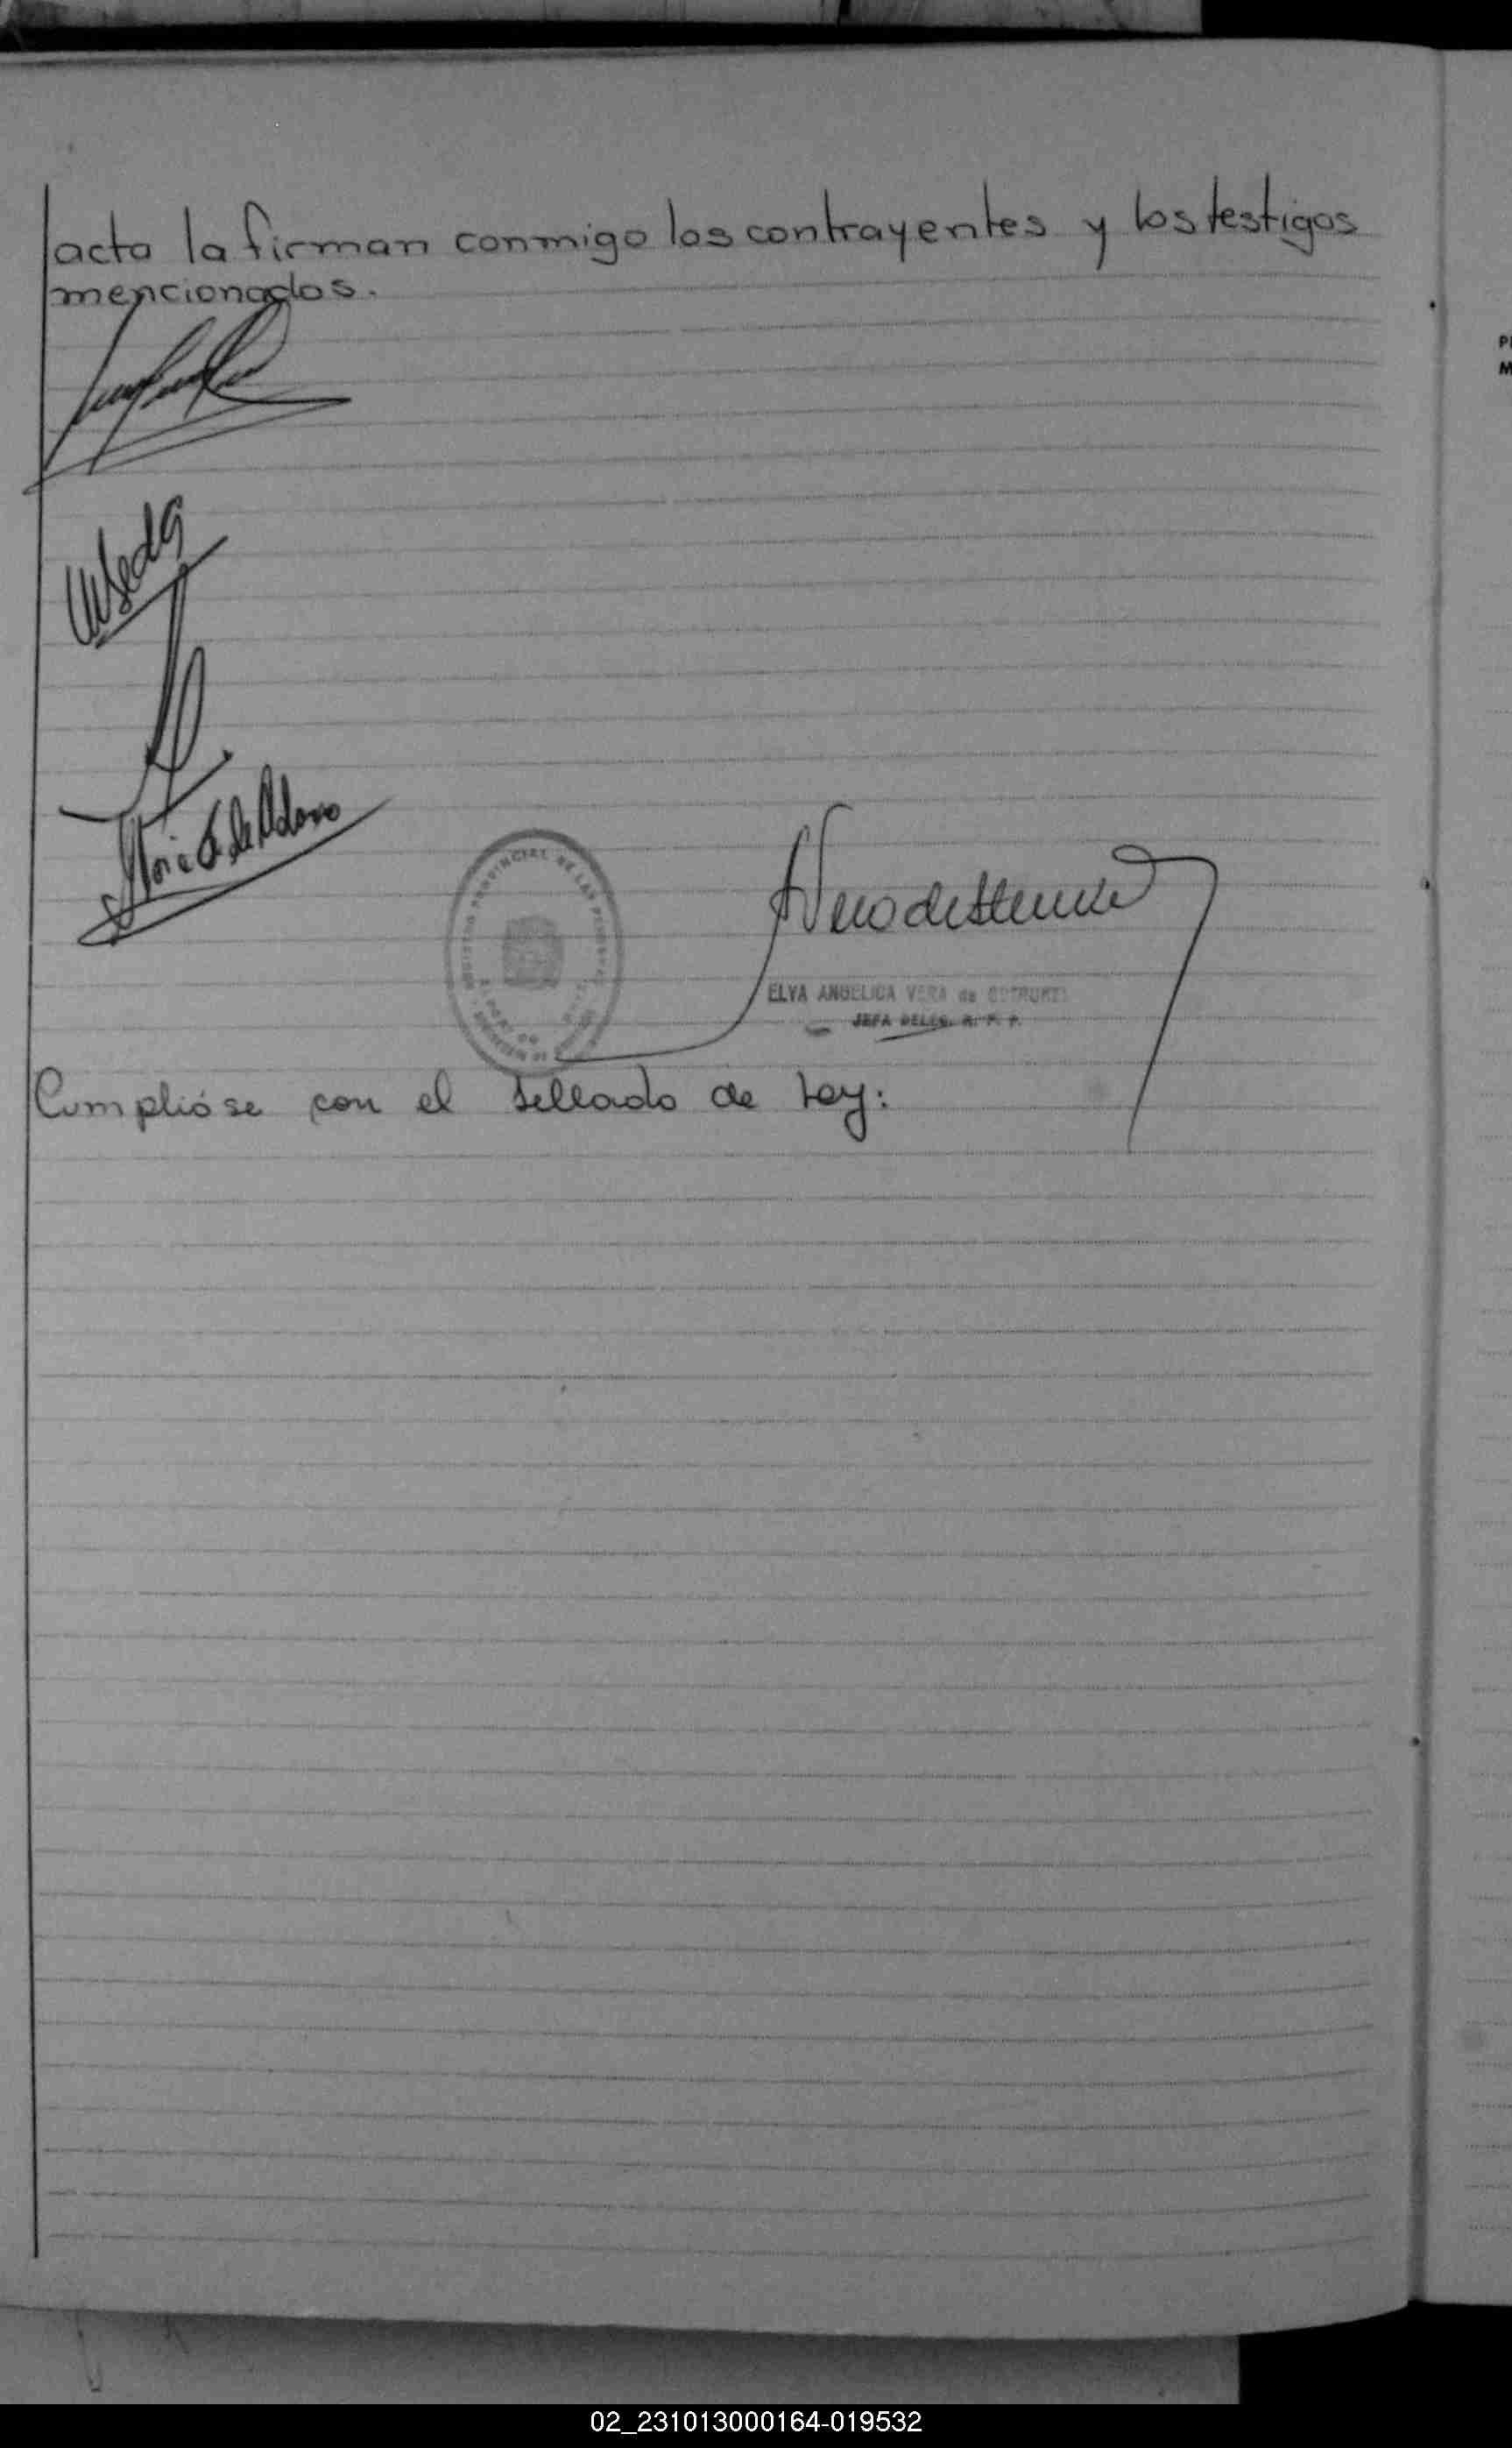 acta la firman conmigo los contrayentes y los testigos
mencionados.
REGISTRO PROVINCIAL DE LAS PERSONAS
ELVA ANGELICA VERA de
JEFA DELEG. R. P. P.
Cumplióse con el sellado de Ley:
02_231013000164-019532